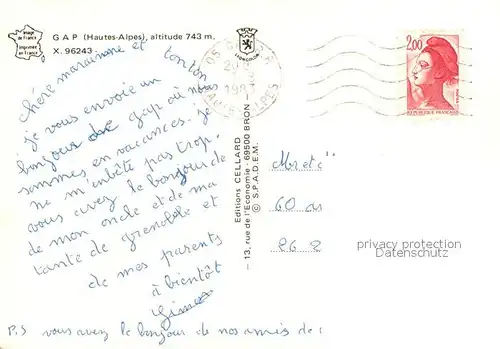 Image
de France
Imprimée
en France
GAP (Hautes-Alpes), altitude 743 m.
X. 96243 -
LION COUR
Chère marainne et tonton
je vous envoie un
bonjour de gap où nous
sommes en vacances. je
ne m'unbête pas trop.
vous avez le bonjour de
de mon oncle et de ma
tante de grenoble et
de mes parents
à bientôt
P.S vous avez le bonjour de nos amis de
Editions CELLARD
- 13, rue de l'Economie - 69500 BRON
© S.P.A.D.E.M.
05 GAP
HAUTES ALPES
2,00
REPUBLIQUE FRANÇAISE
60
privacy protection
Datenschutz